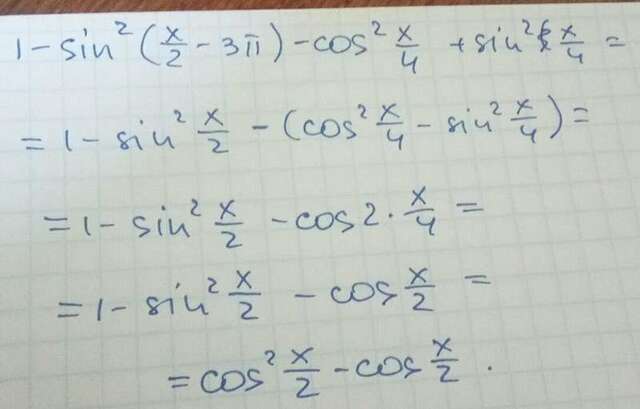 1 - sin²(x/2 - 3π) - cos² x/4 + sin² x/4 =
= 1 - sin² x/2 - (cos² x/4 - sin² x/4) =
= 1 - sin² x/2 - cos 2 · x/4 =
= 1 - sin² x/2 - cos x/2 =
= cos² x/2 - cos x/2 .